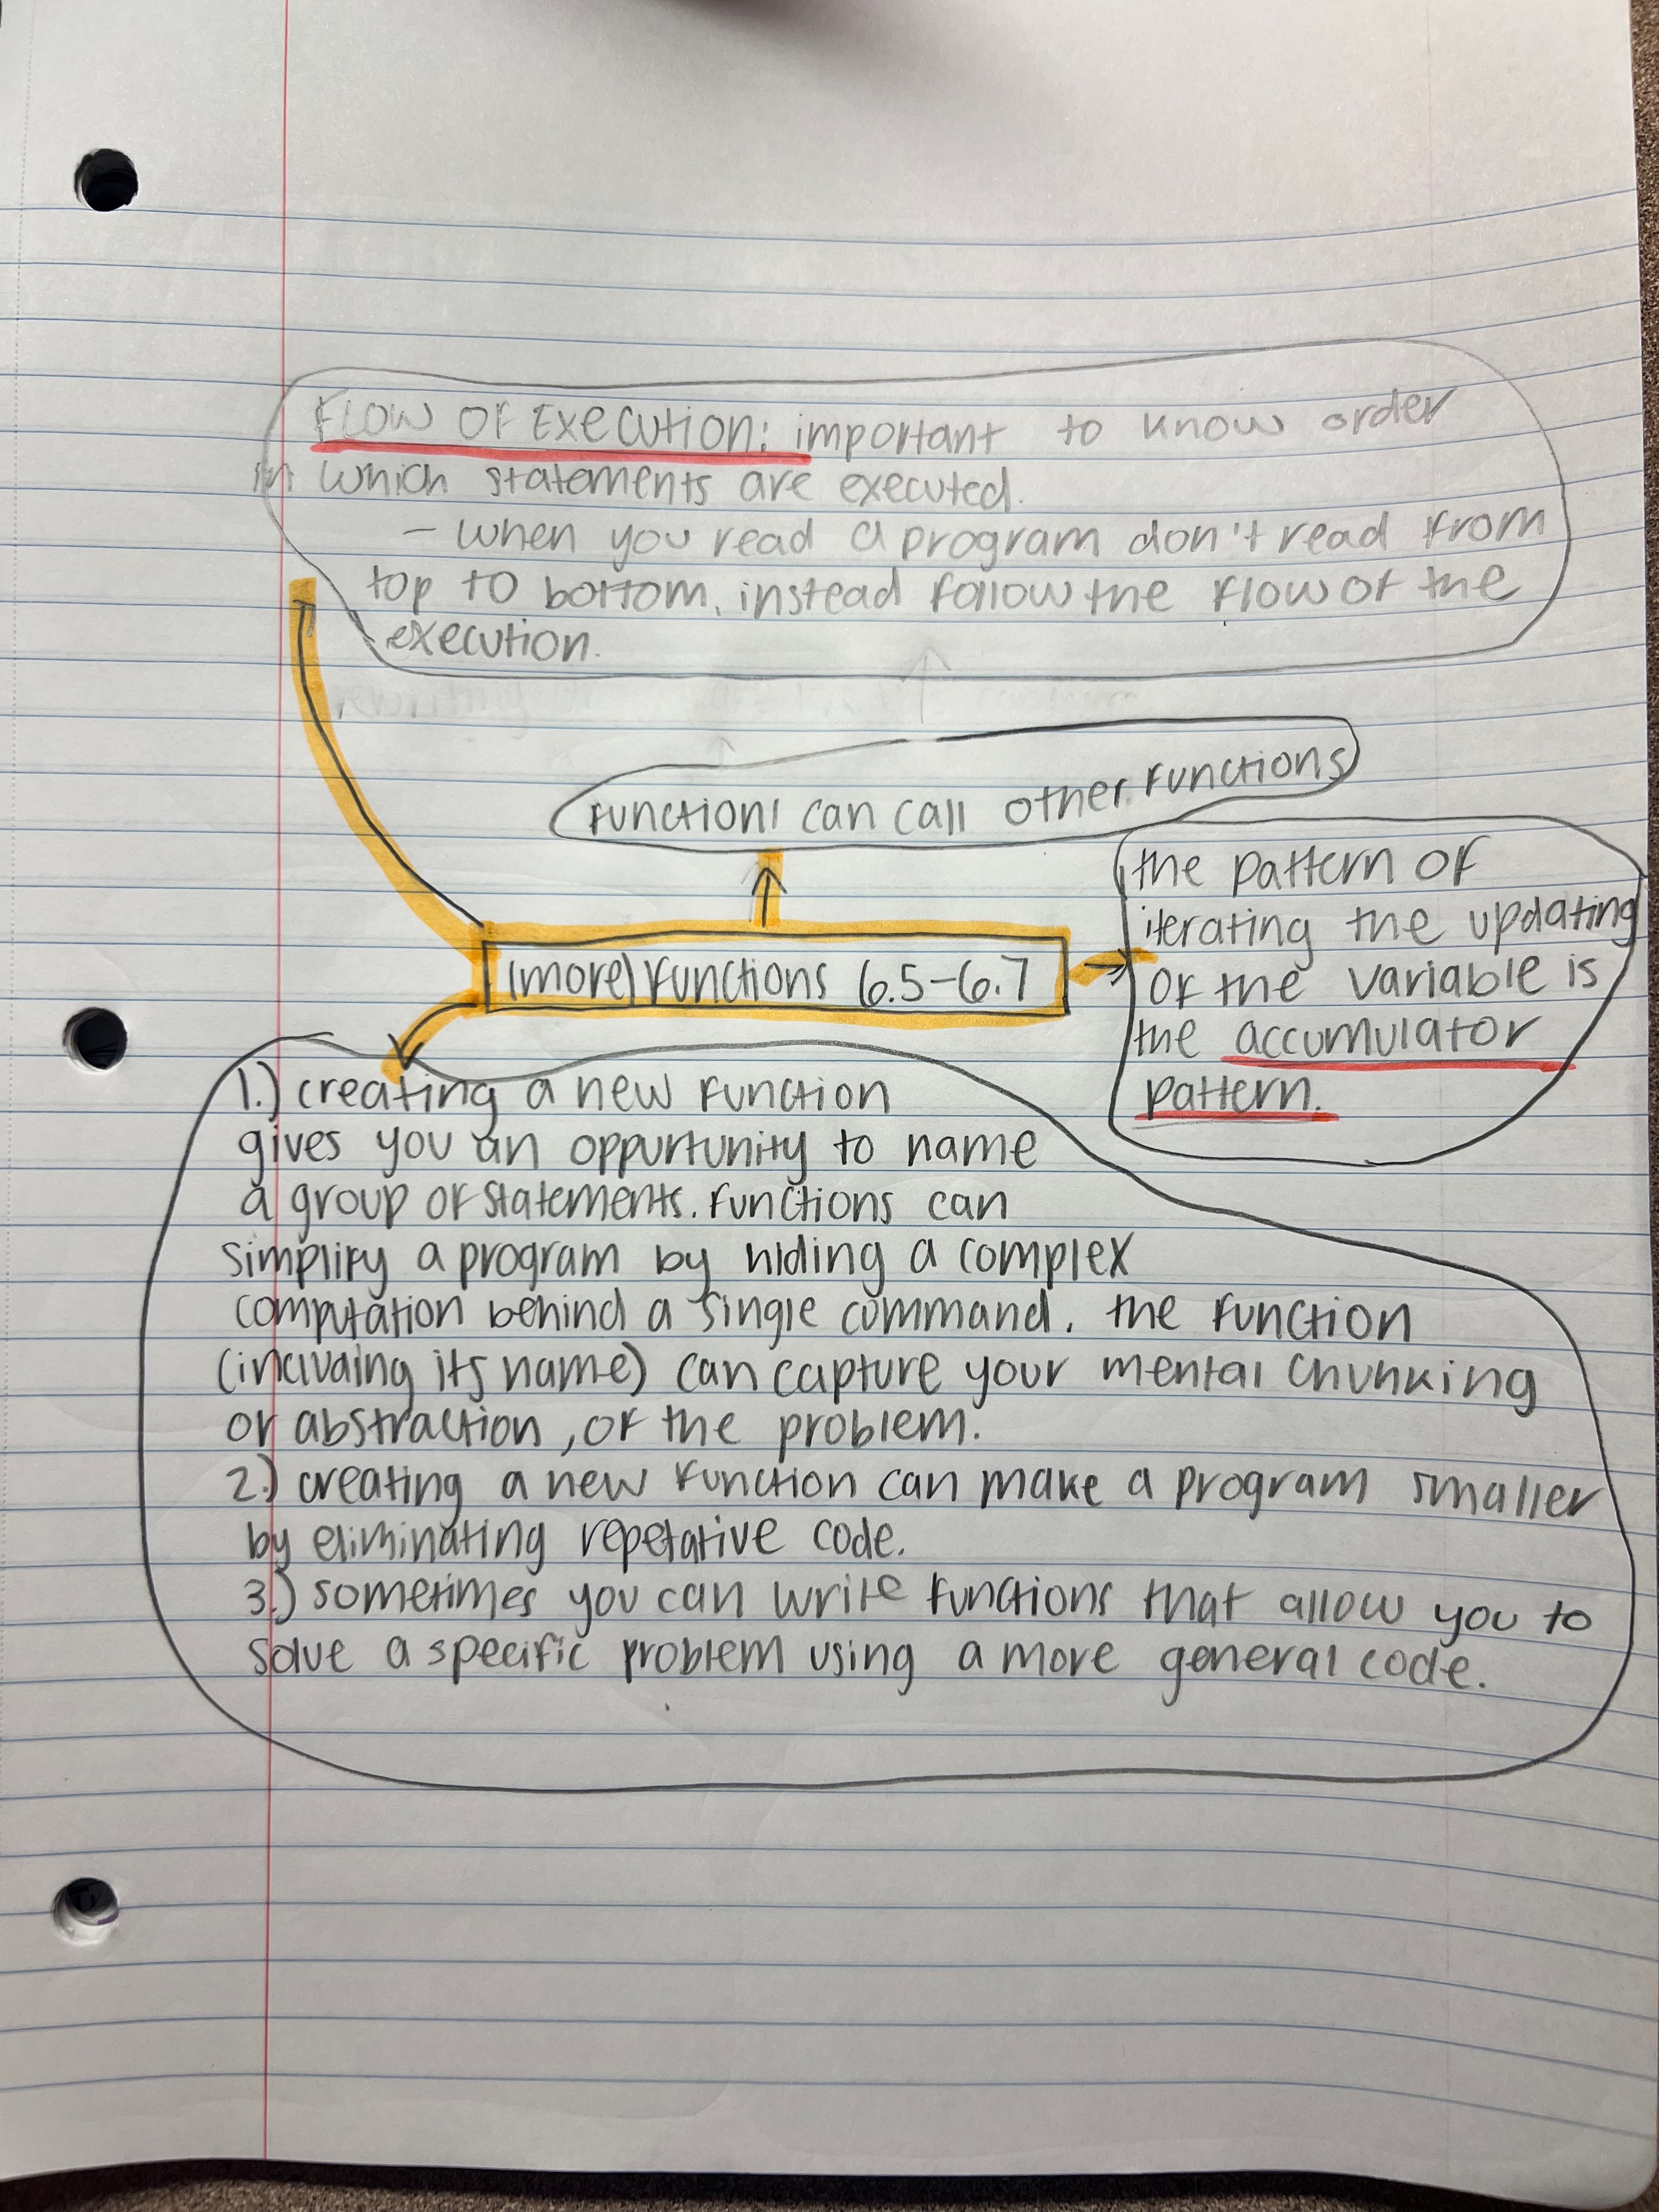 Flow of Execution: important to know order
in which statements are executed.
- when you read a program don't read from
top to bottom, instead follow the flow of the
execution.
functions can call other functions
the pattern of
iterating the updating
of the variable is
the accumulator
pattern.
(more) functions 6.5-6.7
1.) creating a new function
gives you an oppurtunity to name
a group of statements. functions can
simplify a program by hiding a complex
computation behind a single command. the function
(including its name) can capture your mental chunking
or abstraction, of the problem.
2.) creating a new function can make a program smaller
by eliminating repetative code.
3.) sometimes you can write functions that allow you to
solve a specific problem using a more general code.